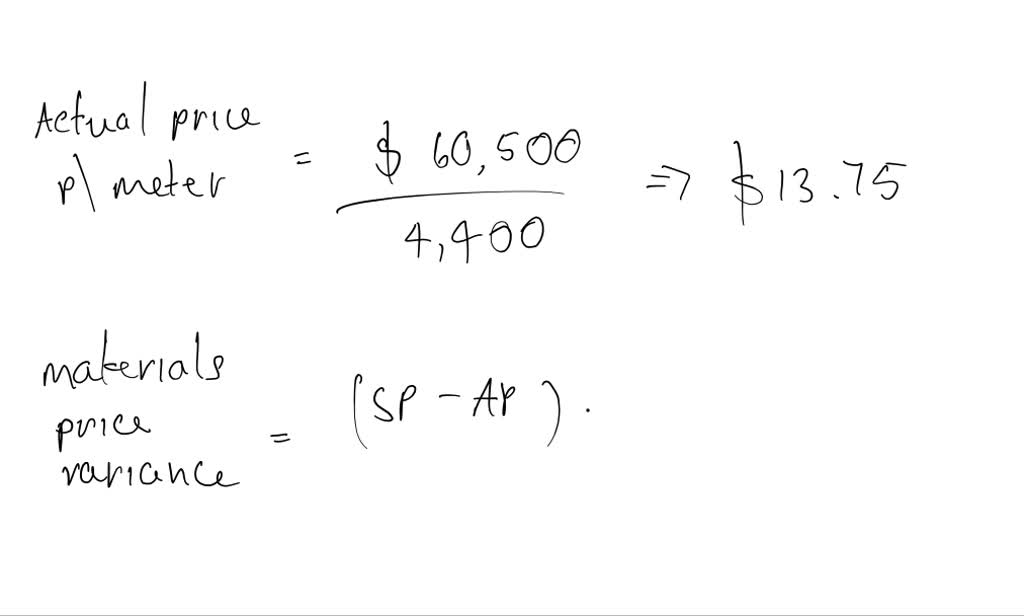 Actual price
p\ meter = $ 60,500 / 4,400 => $13.75
materials
price
variance = (SP - AP).